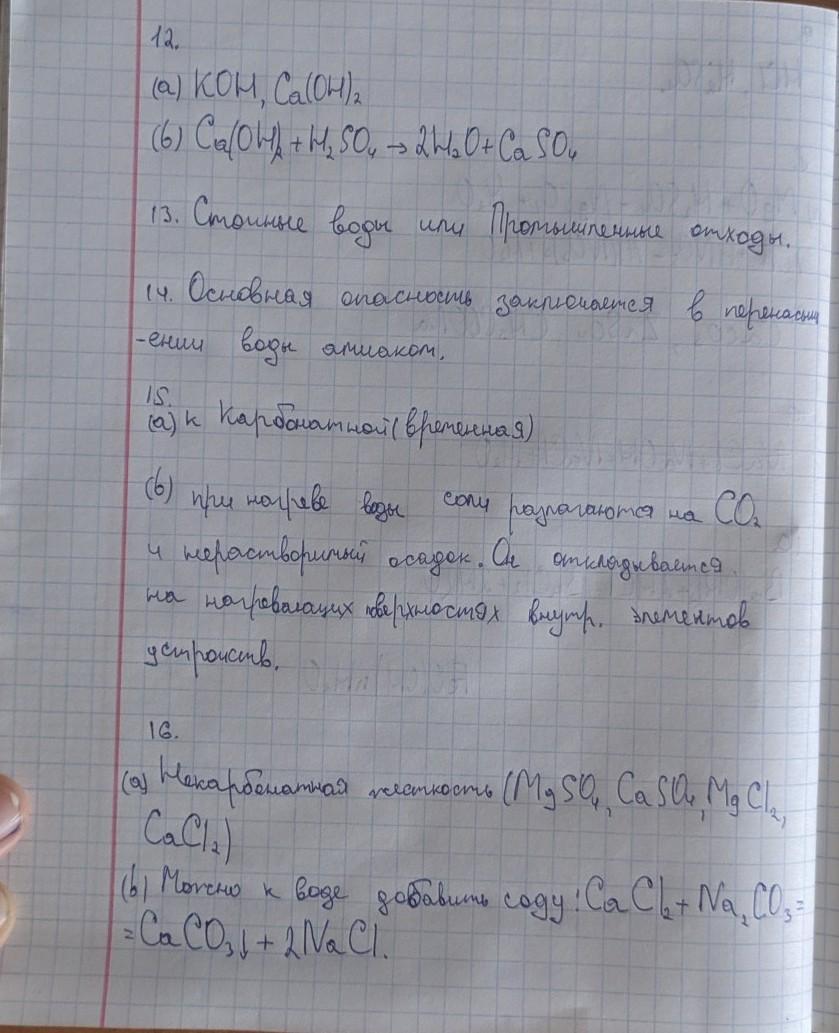 12.
(a) KOH, Ca(OH)₂
(b) Ca(OH)₂ + H₂SO₄ → 2H₂O + CaSO₄
13. Сточные воды или Промышленные отходы.
14. Основная опасность заключается в перенасыщ
-ении воды амиаком.
15.
(a) к Карбонатной (временная)
(b) при нагреве воды соли разлагаются на CO₂
и нерастворимый осадок. Он откладывается
на нагревающих поверхностях внутр. элементов
устройств.
16.
(a) Некарбонатная жесткость (MgSO₄, CaSO₄, MgCl₂,
CaCl₂)
(b) Можно к воде добавить соду: CaCl₂ + Na₂CO₃ =
= CaCO₃↓ + 2NaCl.